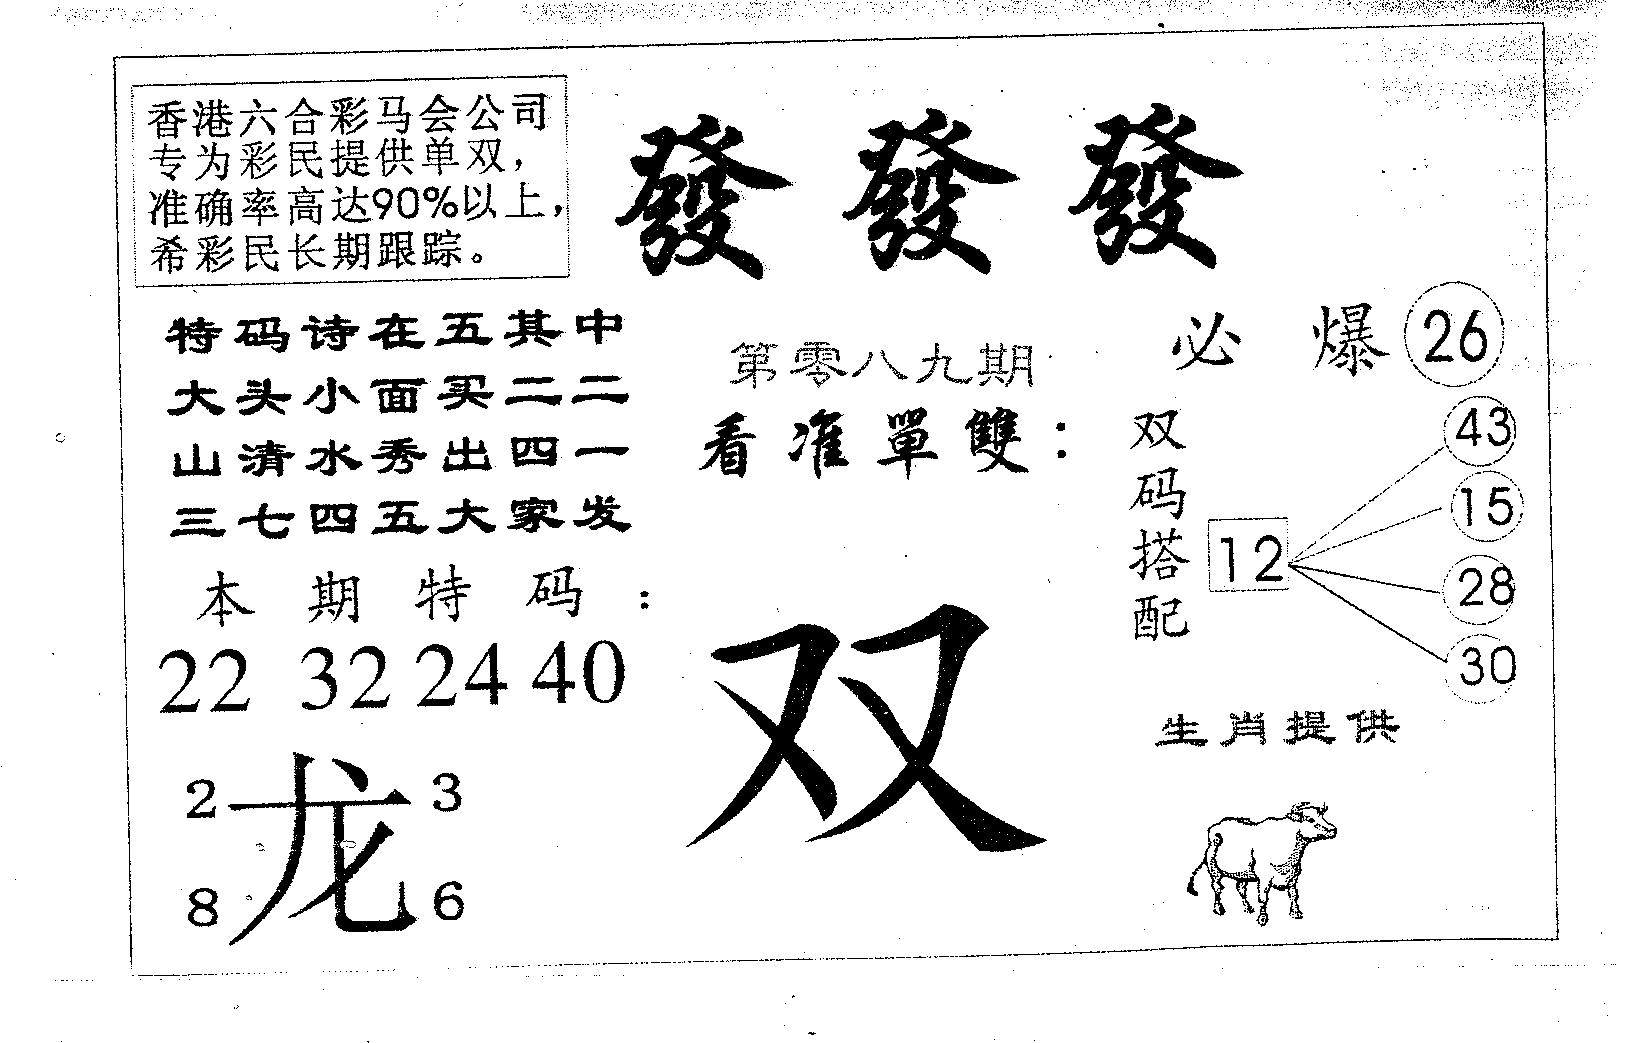 香港六合彩马会公司
专为彩民提供单双，
准确率高达90%以上，
希彩民长期跟踪。
發發發
特码诗在五其中
大头小面买二二
山清水秀出四一
三七四五大家发
本期特码：
22 32 24 40
2 3
龙
8 6
第零八九期
看准單雙：
双
必爆 26
双码搭配
12
43
15
28
30
生肖提供